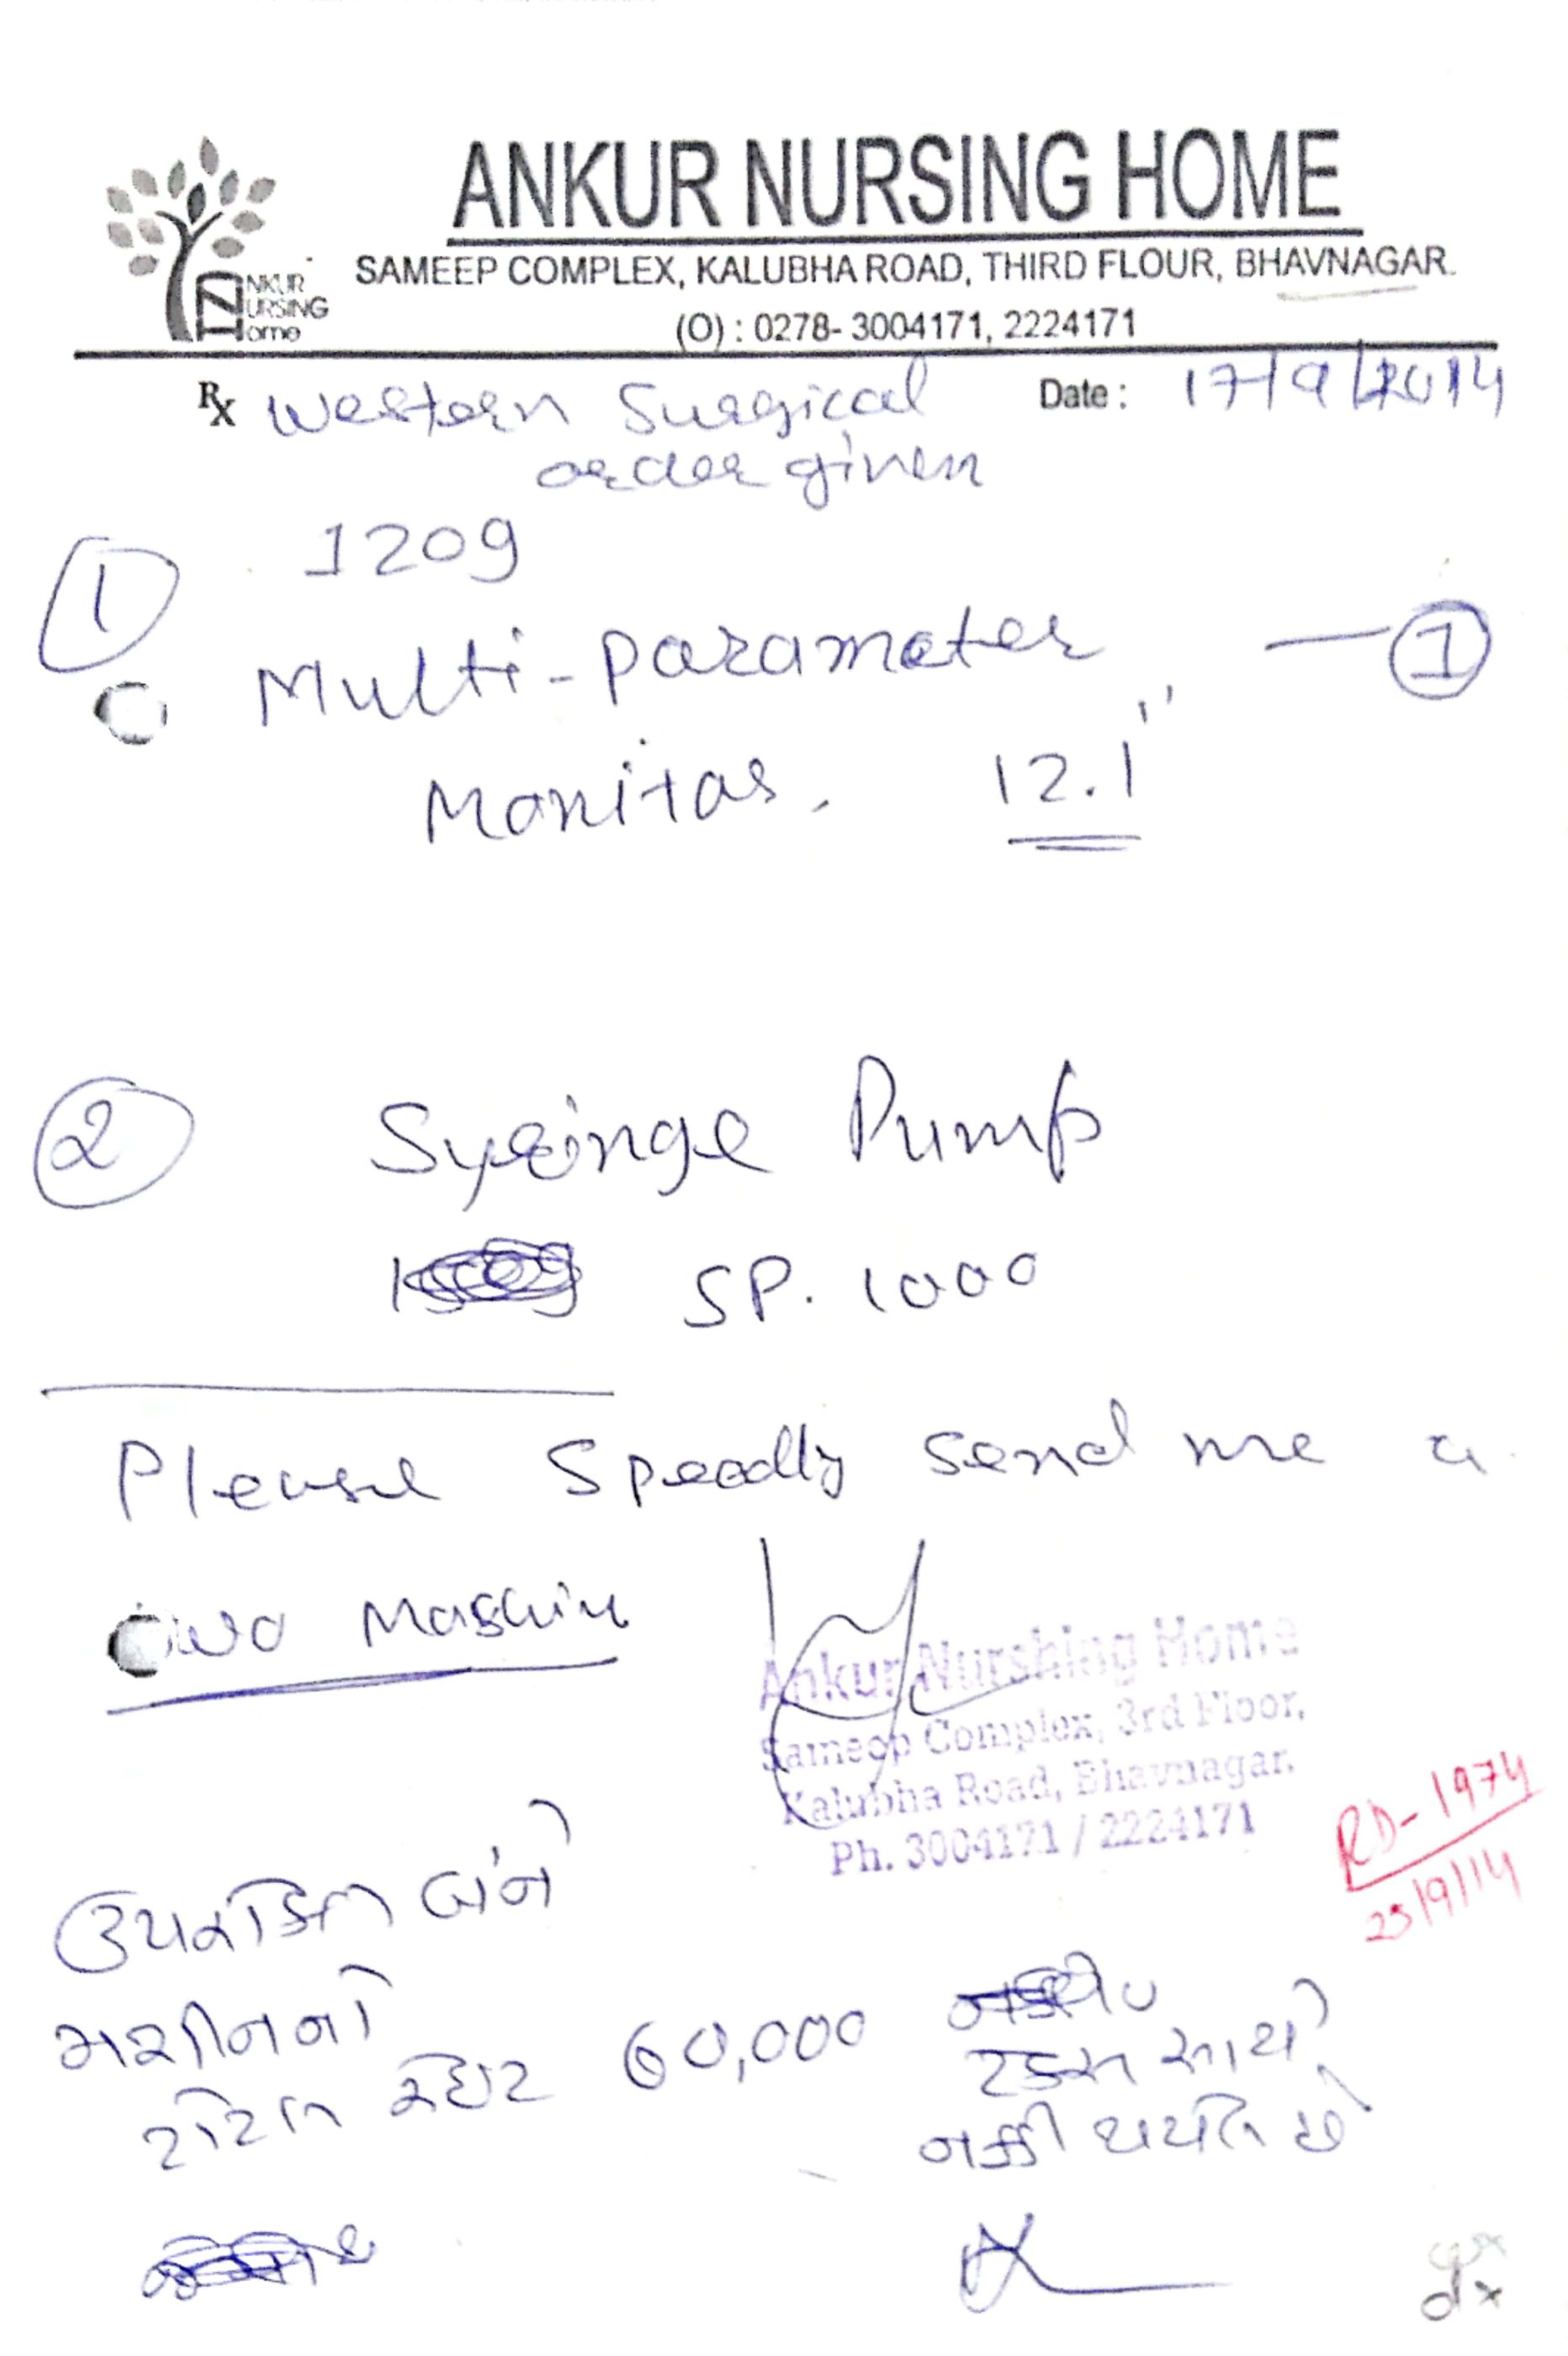 ANKUR NURSING HOME
ANKUR
NURSING
Home
SAMEEP COMPLEX, KALUBHA ROAD, THIRD FLOUR, BHAVNAGAR.
(O) : 0278- 3004171, 2224171
Rx Western Surgical Date : 17/9/2014
order given
1 1209
Multi-parameter — 1
Monitor. 12.1"
2 Syringe Pump
SP. 1000
Please Speedly send me a
two Mashin
Ankur Nurshing Home
Sameep Complex, 3rd Floor,
Kalubha Road, Bhavnagar.
Ph. 3004171 / 2224171
RD-1974
25/9/14
ઉપરોક્ત બંને
મશીનનો
ટોટલ રેઇટ 60,000
ટેક્સ સાથે
નક્કી થયેલ છે